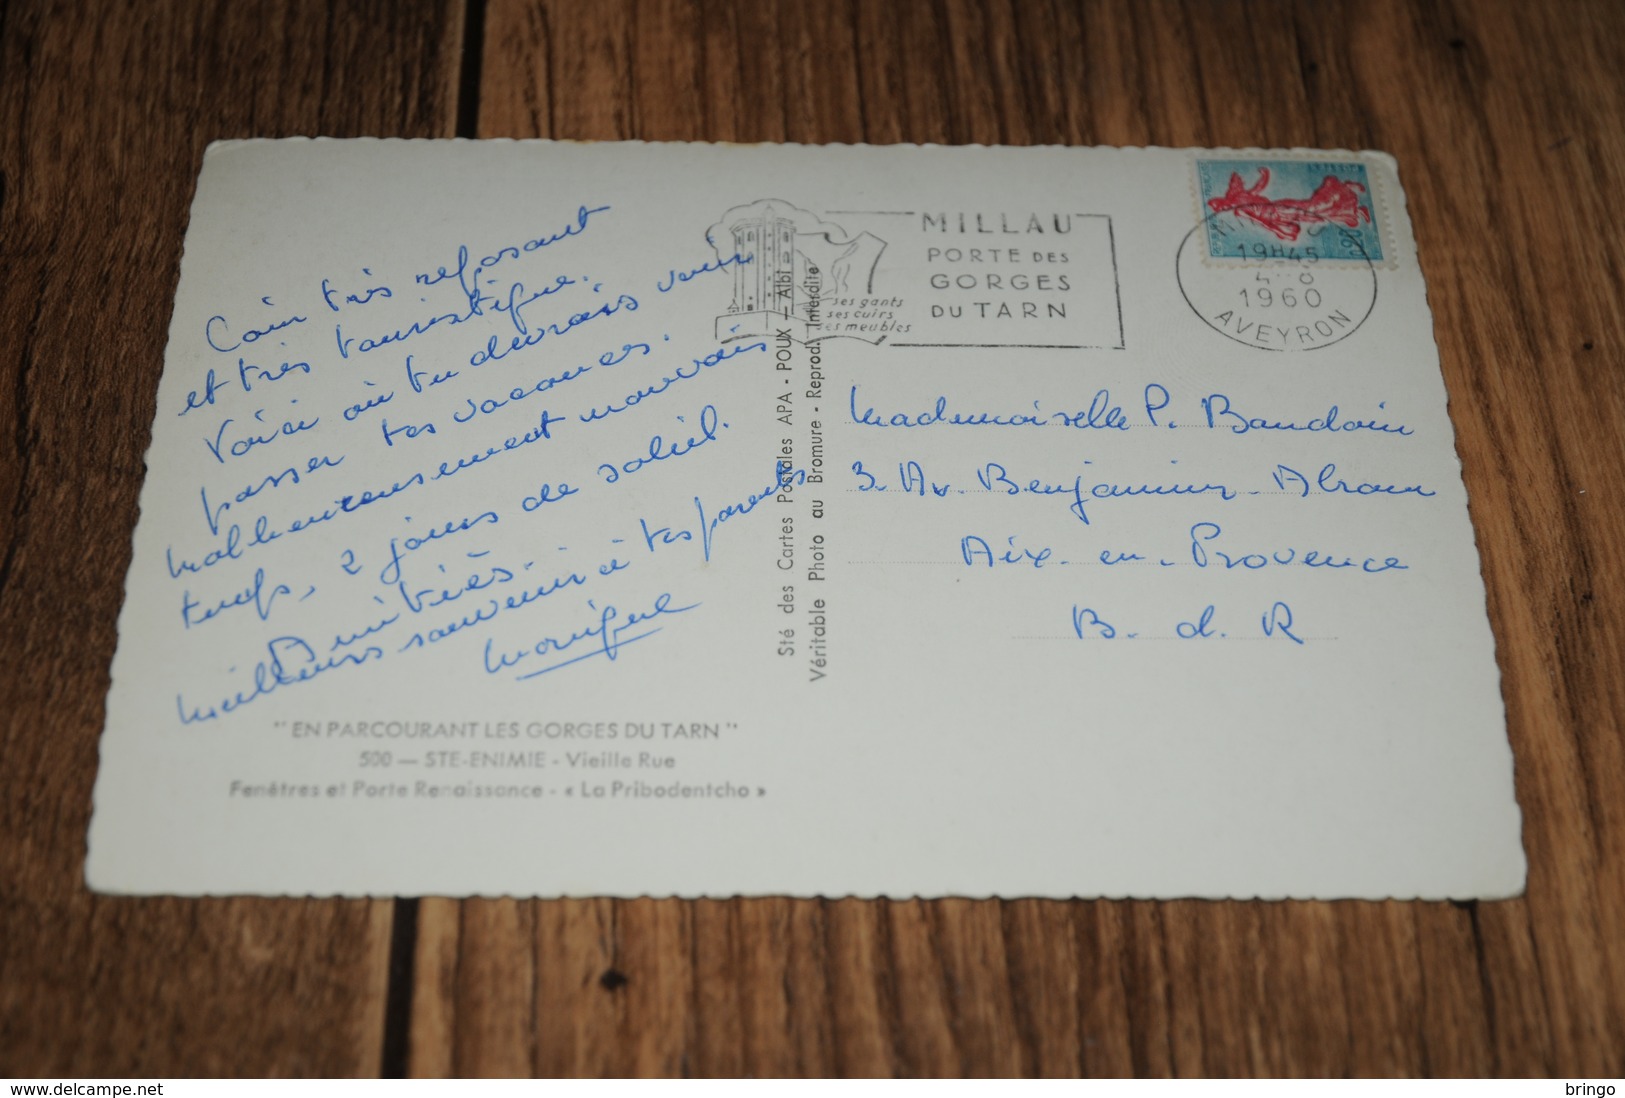 Coin très reposant
et très touristique.
Voici où tu devrais venir
passer tes vacances.
Malheureusement mauvais
temps, 2 jours de soleil.
Amitiés.
Meilleurs souvenirs à tes parents
Monique
" EN PARCOURANT LES GORGES DU TARN "
500 — STE-ENIMIE - Vieille Rue
Fenêtres et Porte Renaissance - « La Pribodentcho »
Sté des Cartes Postales APA - POUX — Albi
Véritable Photo au Bromure - Reprod. Interdite
ses gants
ses cuirs
ses meubles
MILLAU
PORTE DES
GORGES
DU TARN
0,20
19H45
1960
AVEYRON
Mademoiselle P. Baudoin
3. Av. Benjamin-Abram
Aix-en-Provence
B. d. R
delcampe.net
bringo